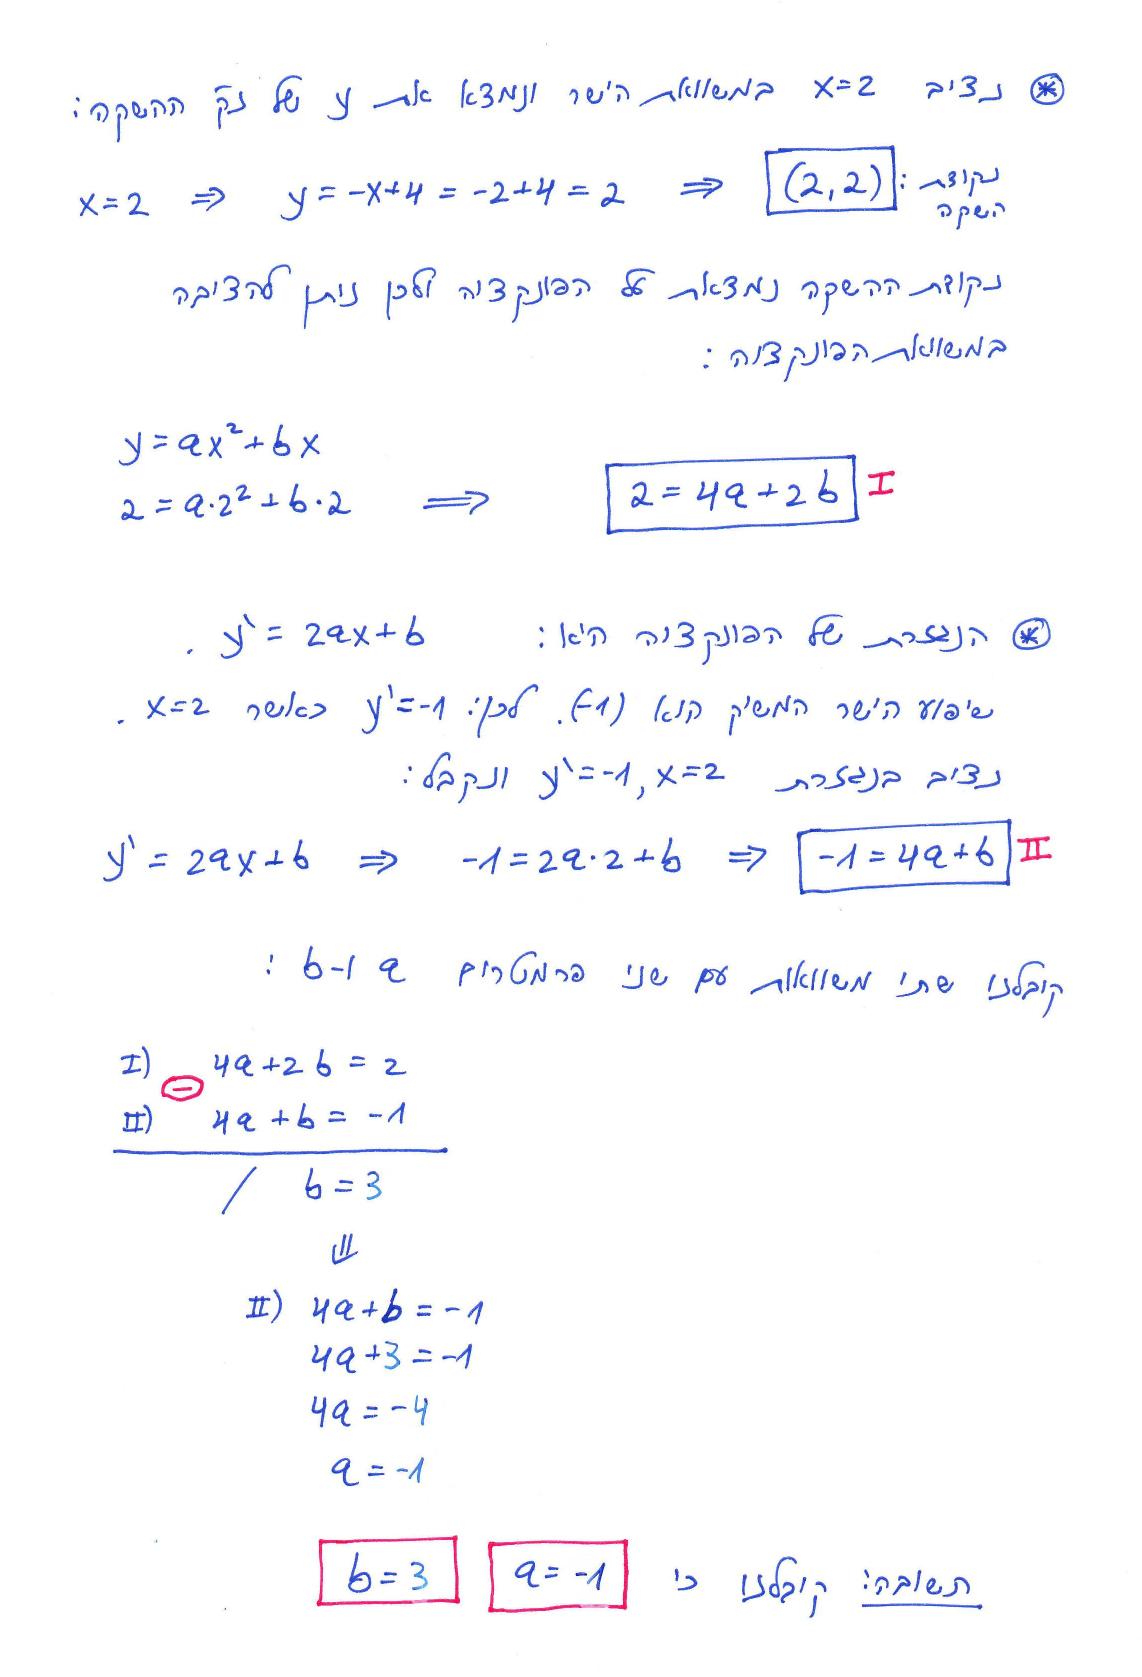 ⊛ נציב x=2 במשוואת הישר ונמצא את y של נק' ההשקה:
x=2 ⇒ y=-x+4=-2+4=2 ⇒ (2,2) נקודת השקה:
נקודת ההשקה נמצאת על הפונקציה ולכן ניתן להציבה
במשוואת הפונקציה:
y=ax²+bx
2=a·2²+b·2 ⟹ 2=4a+2b I
⊛ הנגזרת של הפונקציה היא: y'=2ax+b.
שיפוע הישר המשיק הוא (-1). לכן: y'=-1 כאשר x=2.
נציב בנגזרת y'=-1, x=2 ונקבל:
y'=2ax+b ⇒ -1=2a·2+b ⇒ -1=4a+b II
קיבלנו שתי משוואות עם שני פרמטרים a ו-b:
I) 4a+2b=2
⊖
II) 4a+b=-1
/ b=3
⇓
II) 4a+b=-1
4a+3=-1
4a=-4
a=-1
תשובה: קיבלנו כי a=-1 b=3